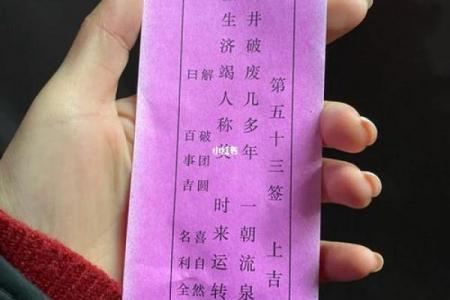 第五十三签 上吉
井破废几多年 一朝流泉
生济竭人称美 时来运转
解曰
破团圆 喜自然
百事吉 名利全
小红书